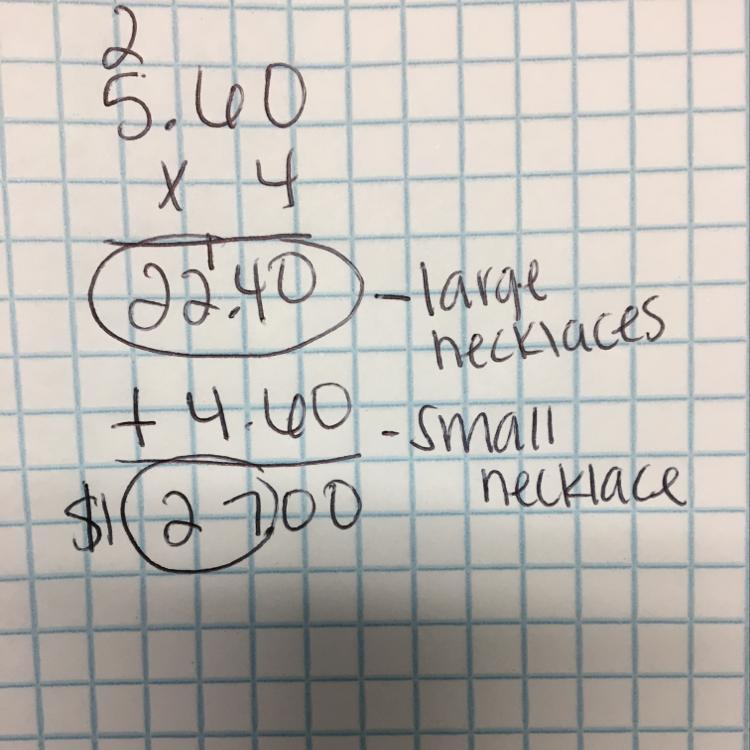 2
5.60
x 4
1
22.40 - large
necklaces
+ 4.60 - small
necklace
$ 27.00